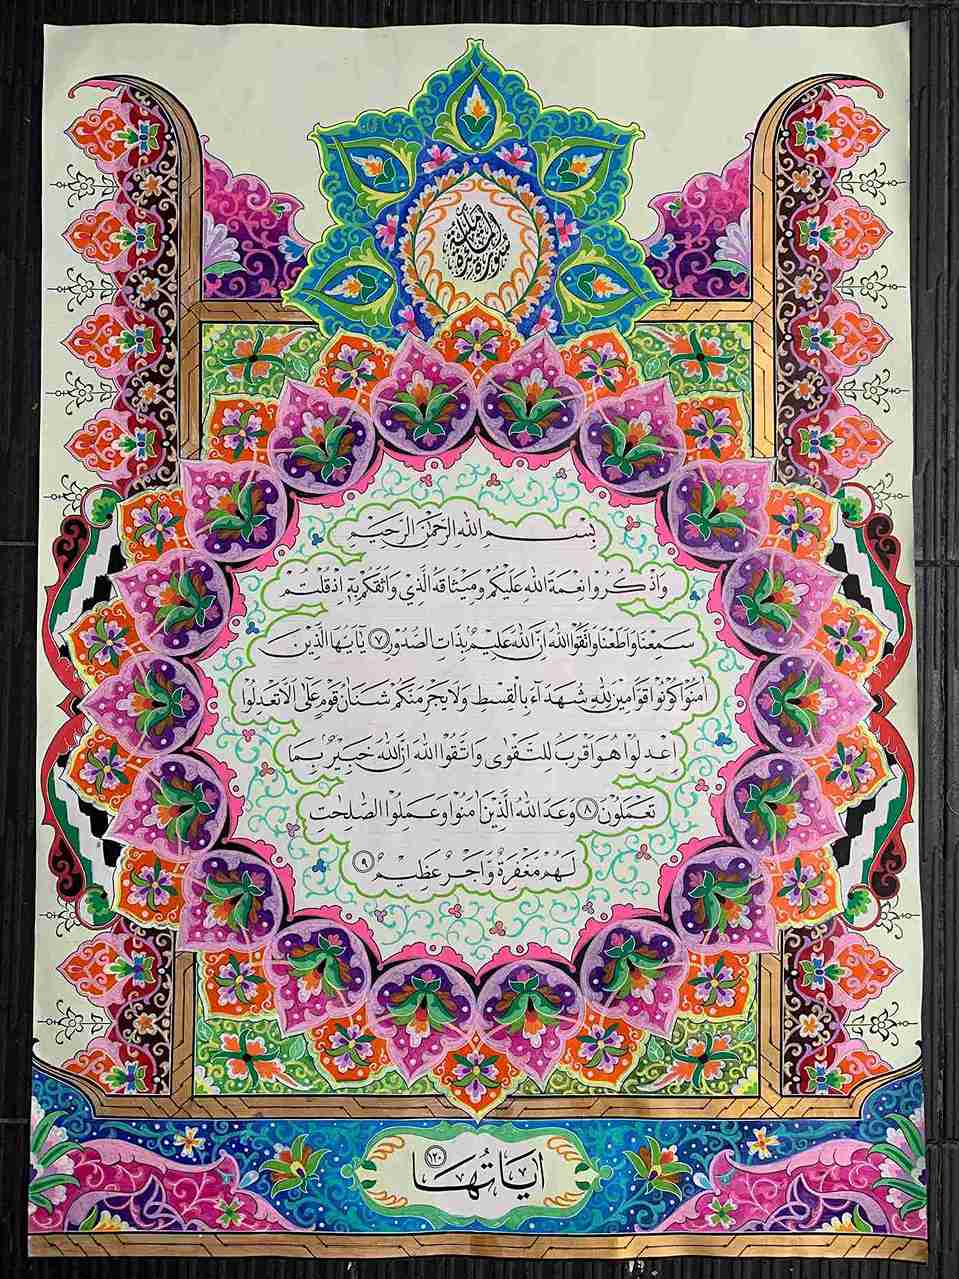 سورة المائدة
بِسْمِ اللهِ الرَّحْمٰنِ الرَّحِيْمِ
وَاذْكُرُوْا نِعْمَةَ اللهِ عَلَيْكُمْ وَمِيْثَاقَهُ الَّذِيْ وَاثَقَكُمْ بِهٖٓ اِذْ قُلْتُمْ
سَمِعْنَا وَاَطَعْنَا وَاتَّقُوا اللهَ اِنَّ اللهَ عَلِيْمٌ ۢبِذَاتِ الصُّدُوْرِ ٧ يٰٓاَيُّهَا الَّذِيْنَ
اٰمَنُوْا كُوْنُوْا قَوَّامِيْنَ لِلّٰهِ شُهَدَاۤءَ بِالْقِسْطِ وَلَا يَجْرِمَنَّكُمْ شَنَاٰنُ قَوْمٍ عَلٰٓى اَلَّا تَعْدِلُوْا
اِعْدِلُوْا هُوَ اَقْرَبُ لِلتَّقْوٰى وَاتَّقُوا اللهَ اِنَّ اللهَ خَبِيْرٌ ۢبِمَا
تَعْمَلُوْنَ ٨ وَعَدَ اللهُ الَّذِيْنَ اٰمَنُوْا وَعَمِلُوا الصّٰلِحٰتِ
لَهُمْ مَّغْفِرَةٌ وَّاَجْرٌ عَظِيْمٌ ٩
اٰيَاتُهَا ١٢٠